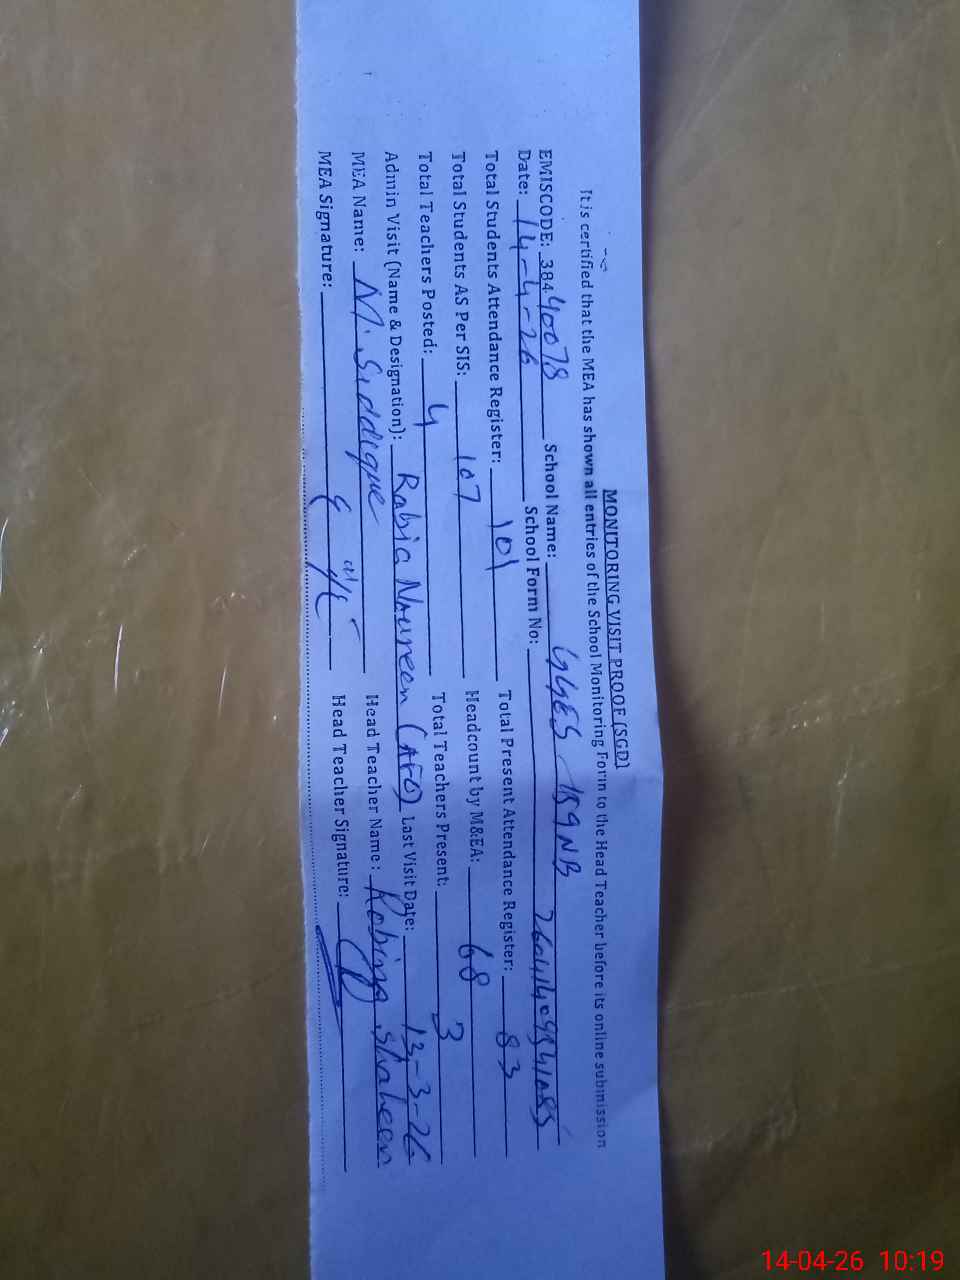 MONITORING VISIT PROOF (SGD)
It is certified that the MEA has shown all entries of the School Monitoring Form to the Head Teacher before its online submission
EMISCODE: 38440078 School Name: GGES 159NB
Date: 14-4-26 School Form No:
Total Students Attendance Register: 101 Total Present Attendance Register: 83
Total Students AS Per SIS: 107 Headcount by M&EA: 68
Total Teachers Posted: 4 Total Teachers Present: 3
Admin Visit (Name & Designation): Rabia Noureen (AEO) Last Visit Date: 13-3-26
MEA Name: M. Siddique Head Teacher Name: Robina Shaheen
MEA Signature: Head Teacher Signature:
14-04-26 10:19